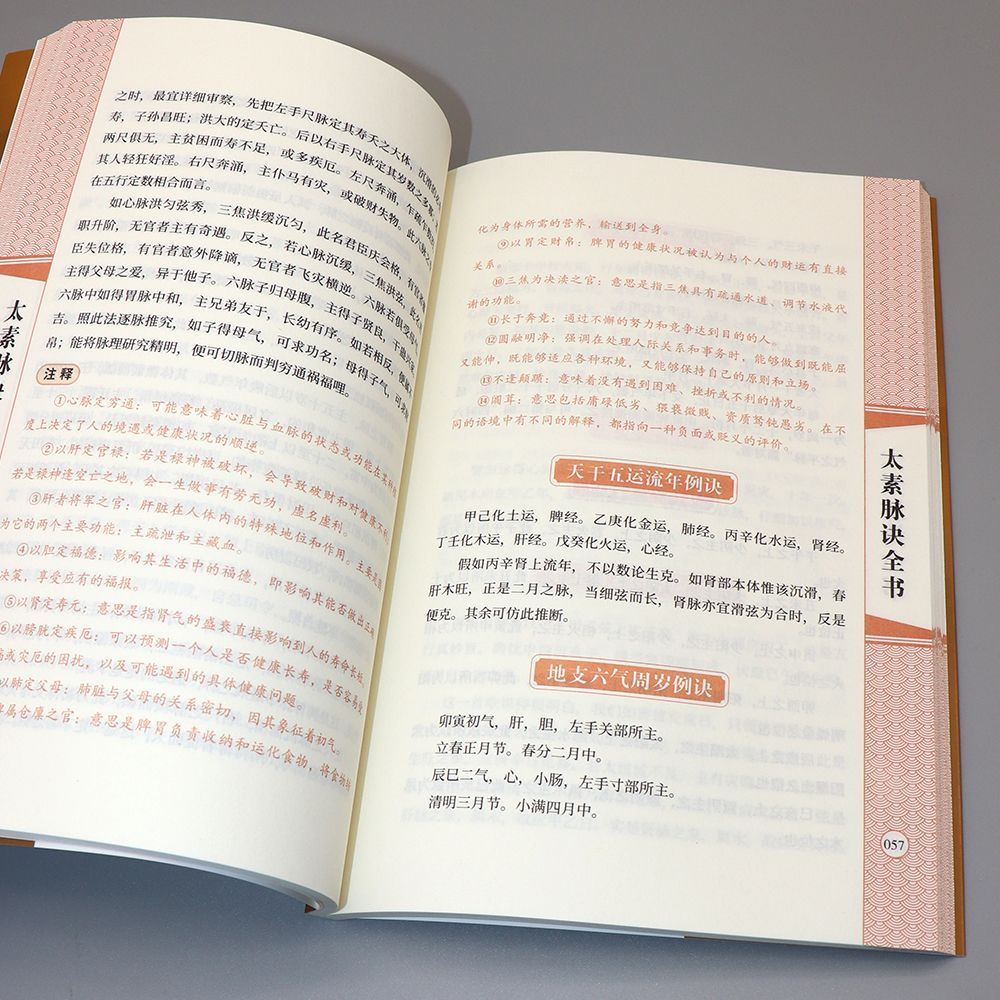 之时，最宜详细审察，先把左手尺脉定其寿夭之大体，沉滑的
寿，子孙昌旺；洪大的定夭亡。后以右手尺脉定其岁数之多寡，
两尺俱无，主贫困而寿不足，或多疾厄。左尺奔涌，
其人轻狂好淫。右尺奔涌，主仆马有灾，或破财失物。此六脉之
在五行定数相合而言。
如心脉洪匀弦秀，三焦洪缓沉匀，此名君臣庆会格，有官者
职升阶，无官者主有奇遇。反之，若心脉沉缓，三焦洪弦，
臣失位格，有官者意外降谪，无官者飞灾横逆。六脉若俱受
主得父母之爱，异于他子。六脉子归母腹，主得子贤良，干蛊
六脉中如得胃脉中和，主兄弟友于，长幼有序。如若相反，便
吉。照此法逐脉推究，如子得母气，可求功名；母得子气，可
帛；能将脉理研究精明，便可切脉而判穷通祸福哩。
注释
①心脉定穷通：可能意味着心脏与血脉的状态或功能在某种程
度上决定了人的境遇或健康状况的顺逆。
②以肝定官禄：若是禄神被破坏，会导致破财和对健康不利，
若是禄神逢空亡之地，会一生做事有劳无功，虚名虚利。
③肝者将军之官：肝脏在人体内的特殊地位和作用。主要
为它的两个主要功能：主疏泄和主藏血。
④以胆定福德：影响其生活中的福德，即影响其能否做出正确
决策，享受应有的福报。
⑤以肾定寿元：意思是指肾气的盛衰直接影响到人的寿命长短
⑥以膀胱定疾厄：可以预测一个人是否健康长寿，是否容易受
病或灾厄的困扰，以及可能遇到的具体健康问题。
以肺定父母：肺脏与父母的关系密切，因其象征着初气。
脾属仓廪之官：意思是脾胃负责收纳和运化食物，将食物转
太素脉
化为身体所需的营养，输送到全身。
⑨以胃定财帛：脾胃的健康状况被认为与个人的财运有直接
关系。
⑩三焦为决渎之官：意思是指三焦具有疏通水道，调节水液代
谢的功能。
⑪长于奔竞：通过不懈的努力和竞争达到目的的人。
⑫圆融明净：强调在处理人际关系和事务时，能够做到既能屈
又能伸，既能够适应各种环境，又能够保持自己的原则和立场。
⑬不逢颠踬：意味着没有遇到困难、挫折或不利的情况。
⑭阘茸：意思包括庸碌低劣、猥亵微贱、资质驽钝愚劣。在不
同的语境中有不同的解释，都指向一种负面或贬义的评价。
天干五运流年例诀
甲己化土运，脾经。乙庚化金运，肺经。丙辛化水运，肾经。
丁壬化木运，肝经。戊癸化火运，心经。
假如丙辛肾上流年，不以数论生克。如肾部本体惟该沉滑，春
肝木旺，正是二月之脉，当细弦而长，肾脉亦宜滑弦为合时，反是
便克。其余可仿此推断。
地支六气周岁例诀
卯寅初气，肝，胆，左手关部所主。
立春正月节。春分二月中。
辰巳二气，心，小肠，左手寸部所主。
清明三月节。小满四月中。
太素脉诀全书
057